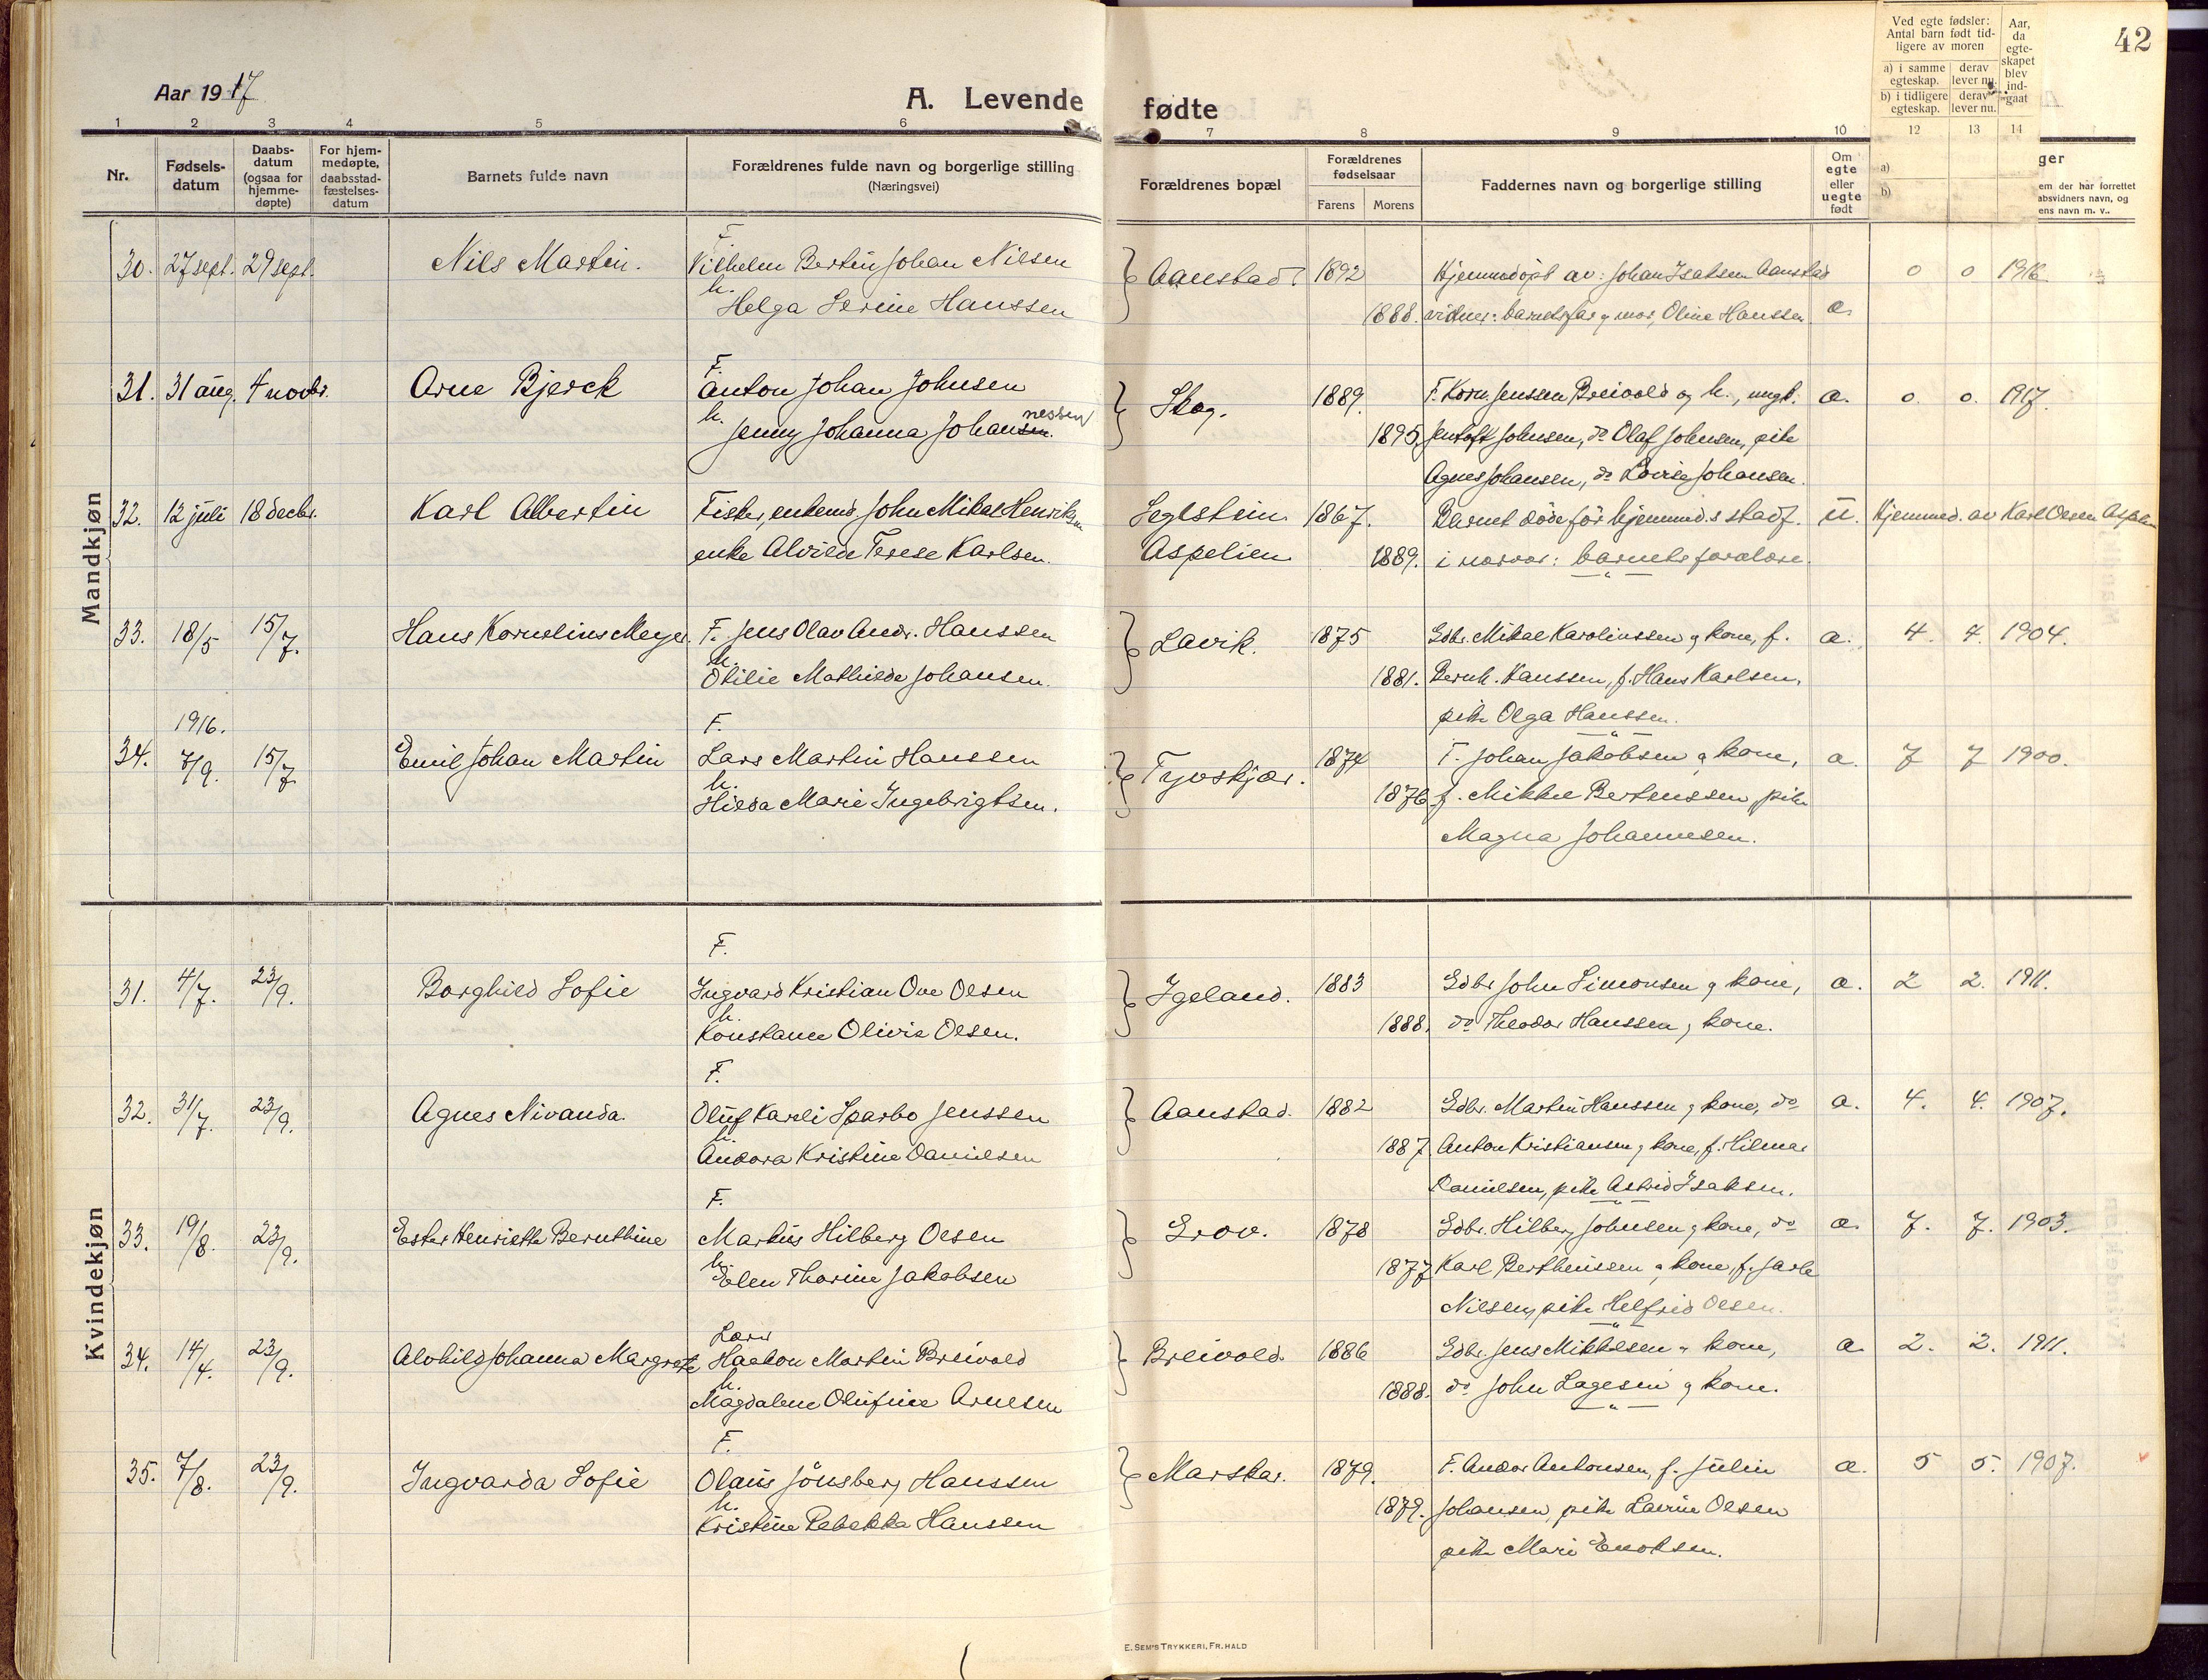 Aar 1917
A. Levende fødte
42
1 2 3 4 5 6 7 8 9 10 12 13 14
Nr.
Fødsels-
datum
Daabs-
datum
(ogsaa for
hjemme-
døpte)
For hjem-
medøpte,
daabsstad-
fæstelses-
datum
Barnets fulde navn
Forældrenes fulde navn og borgerlige stilling
(Næringsvei)
Forældrenes bopæl
Forældrenes
fødselsaar
Farens Morens
Faddernes navn og borgerlige stilling
Om
egte
eller
uegte
født
Ved egte fødsler:
Antal barn født tid-
ligere av moren
a) i samme
egteskap.
derav
lever nu.
b) i tidligere
egteskap.
derav
lever nu.
Aar,
da
egte-
skapet
blev
ind-
gaat
a)
b)
ger
em der har forrettet
absvidners navn, og
ens navn m. v..
Mandkjøn
F.
30. 27 sept. 29 sept. Nils Martin. Vilhelm Bertin Johan Nilsen Aanstad 1892 Hjemmedöpt av: Johan Isaksen Aanstad 0 0 1916
h.
Helga Serine Hanssen 1888. vidner: barnets far og mor, Oline Hanssen e.
F.
31. 31 aug. 4 novbr. Arne Bjerck Anton Johan Johnsen Skog. 1889. F. Korn. Jenssen Breivold og h., ungk. e. 0. 0. 1917.
h. Jenny Johanna Johansen. nessen 1895. Jentoft Johnsen, do Olaf Johnsen, pike
Agnes Johansen, do Lovise Johansen.
32. 12 juli 18 decbr. Karl Albertin Fisker, enkemd. John Mikal Henriksen Seglstein 1867. Barnet döde för hjemmed.s stadf. u. Hjemmed. av Karl Olsen Aspelien
enke Alvilde Terese Karlsen. Aspelien 1889. i nærvær: barnets forældre.
33. 18/5 15/7. Hans Kornelius Meyer. F. Jens Olav Andr. Hanssen Lavik. 1875 Gdbr. Mikal Karolinssen og kone, f. e. 4. 4. 1904.
h.
Otilie Mathilde Johansen. 1881. Bernh. Hanssen, f. Hans Karlsen,
pike Olga Hanssen.
1916. F.
34. 7/9. 15/7 Emil Johan Martin Lars Martin Hanssen Tyvskjær. 1874 F. Johan Jakobsen og kone, e. 7 7 1900.
h.
Hilda Marie Ingebrigtsen. 1876 f. Mikkel Bertenssen, pike
Magna Johannesen.
Kvindekjøn
F.
31. 4/7. 23/9. Borghild Sofie Ingvard Kristian Ove Olsen Igeland. 1883 Gdbr John Simonsen og kone, e. 2 2. 1911.
h.
Konstance Olivie Olsen. 1888. do Theodor Hanssen og kone.
F.
32. 31/7. 23/9. Agnes Nivanda. Oluf Kareli Sparbo Jenssen Aanstad. 1882 Gdbr. Martin Hanssen og kone, do e. 4. 4. 1907.
h.
Andora Kristine Danielsen 1887 Anton Kristiansen og kone, f. Hilmar
Danielsen, pike Astrid Isaksen.
F.
33. 19/8. 23/9. Ester Henriette Bernthine Markus Hilberg Olsen Grov. 1878 Gdbr. Hilberg Johnsen og kone, do e. 7. 7. 1903.
h.
Elen Thorine Jakobsen 1877 Karl Berthinssen og kone, f. Jarle
Nilsen, pike Helfrid Olsen.
Lærer
34. 14/4. 23/9. Alvhild Johanna Margrete Haakon Martin Breivold Breivold. 1886 Gdbr. Jens Mikkelsen og kone, e. 2. 2. 1911.
h.
Magdalene Olufine Arnesen 1888. do John Lagesen og kone.
F.
35. 7/8. 23/9. Ingvarda Sofie Olaus Jönsberg Hanssen Marskar. 1879. F. Andor Antonsen, f. Julin e. 5 5. 1907.
h.
Kristine Rebekka Hanssen 1879. Johansen, pike Lavine Olsen
pike Mari Enoksen.
E. SEM'S TRYKKERI, FR.HALD